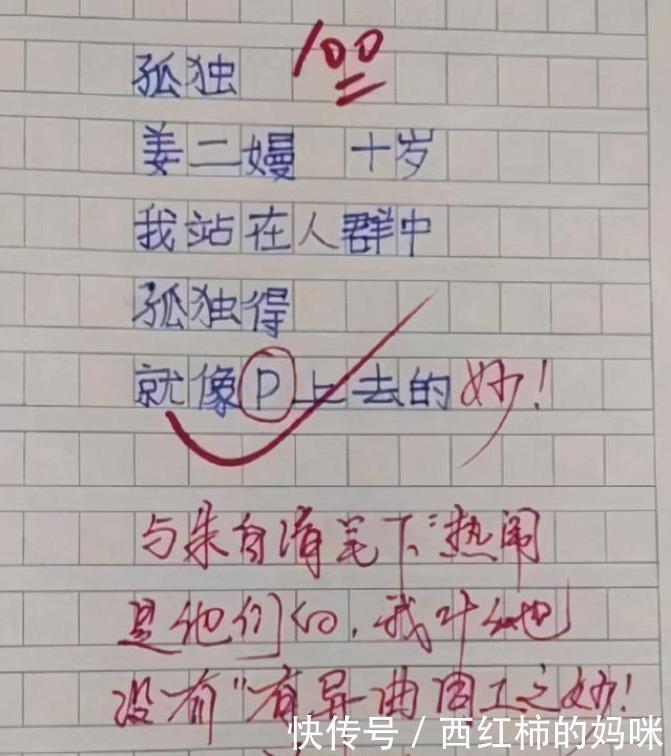 孤独 100
姜二嫚 十岁
我站在人群中
孤独得
就像P上去的 妙！
与朱自清笔下“热闹
是他们的，我什么也
没有”有异曲同工之妙！
快传号 / 西红柿的妈咪